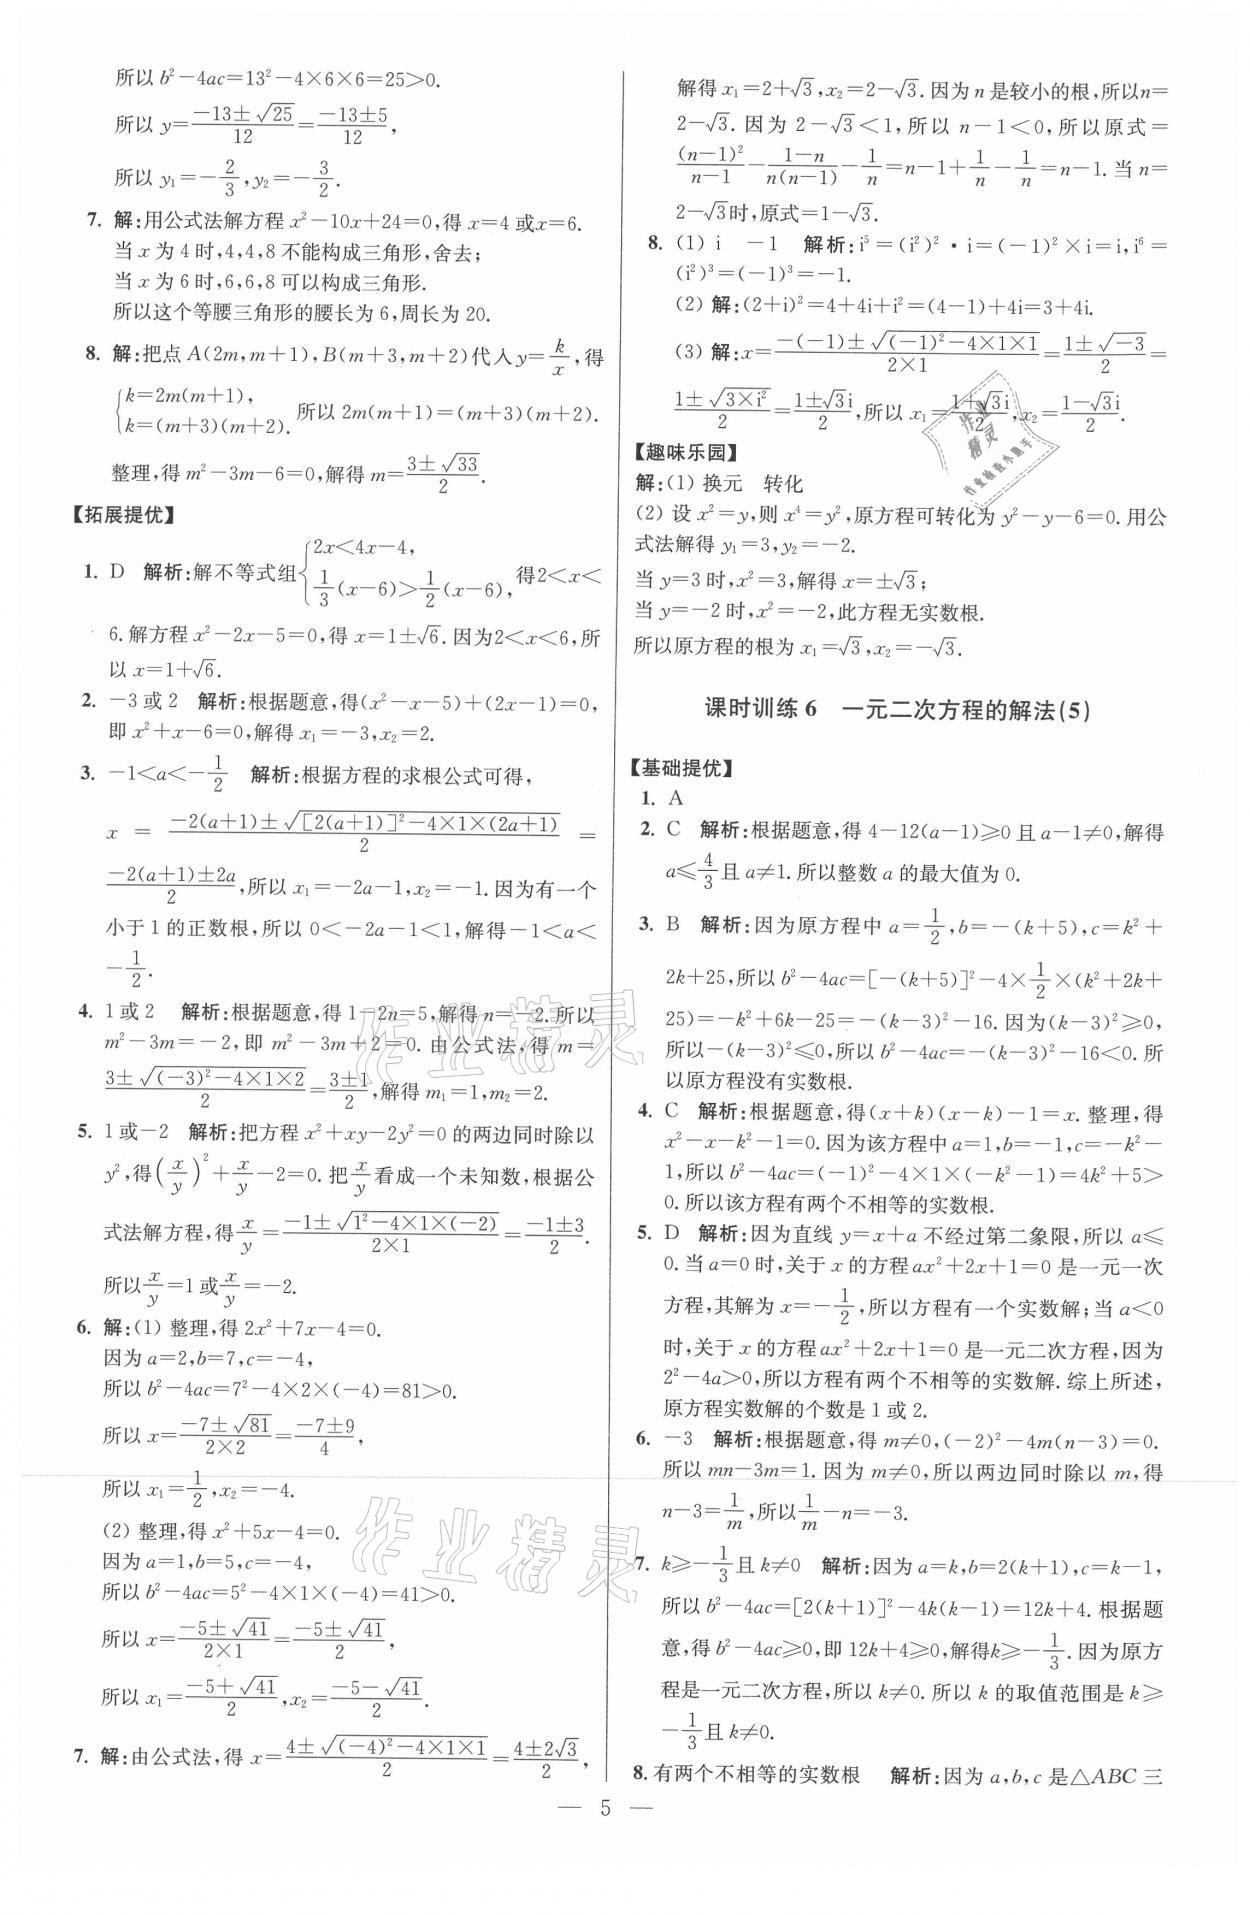 所以 b²－4ac＝13²－4×6×6＝25＞0.
所以 y＝(－13±√25)/12＝(－13±5)/12,
所以 y₁＝－2/3,y₂＝－3/2.
7. 解:用公式法解方程 x²－10x＋24＝0,得 x＝4 或x＝6.
当 x 为 4 时,4,4,8 不能构成三角形,舍去;
当 x 为 6 时,6,6,8 可以构成三角形.
所以这个等腰三角形的腰长为 6,周长为 20.
8. 解:把点 A(2m,m＋1),B(m＋3,m＋2)代入y＝k/x,得
{k＝2m(m＋1),
k＝(m＋3)(m＋2). 所以 2m(m＋1)＝(m＋3)(m＋2).
整理,得 m²－3m－6＝0,解得 m＝(3±√33)/2.
【拓展提优】
1. D 解析:解不等式组{2x＜4x－4,
1/3(x－6)＞1/2(x－6),得2＜x＜
6.解方程 x²－2x－5＝0,得 x＝1±√6.因为2＜x＜6,所
以 x＝1＋√6.
2. －3 或 2 解析:根据题意,得(x²－x－5)＋(2x－1)＝0,
即 x²＋x－6＝0,解得 x₁＝－3,x₂＝2.
3. －1＜a＜－1/2 解析:根据方程的求根公式可得,
x ＝ (－2(a＋1)±√([2(a＋1)]²－4×1×(2a＋1)))/2 ＝
(－2(a＋1)±2a)/2,所以 x₁＝－2a－1,x₂＝－1.因为有一个
小于 1 的正数根,所以 0＜－2a－1＜1,解得－1＜a＜
－1/2.
4. 1 或 2 解析:根据题意,得 1－2n＝5,解得 n＝－2.所以
m²－3m＝－2,即 m²－3m＋2＝0.由公式法,得 m＝
(3±√((－3)²－4×1×2))/2＝(3±1)/2,解得 m₁＝1,m₂＝2.
5. 1 或－2 解析:把方程 x²＋xy－2y²＝0 的两边同时除以
y²,得(x/y)²＋x/y－2＝0.把x/y看成一个未知数,根据公
式法解方程,得x/y＝(－1±√(1²－4×1×(－2)))/(2×1)＝(－1±3)/2.
所以x/y＝1 或x/y＝－2.
6. 解:(1) 整理,得 2x²＋7x－4＝0.
因为 a＝2,b＝7,c＝－4,
所以 b²－4ac＝7²－4×2×(－4)＝81＞0.
所以 x＝(－7±√81)/(2×2)＝(－7±9)/4,
所以 x₁＝1/2,x₂＝－4.
(2) 整理,得 x²＋5x－4＝0.
因为 a＝1,b＝5,c＝－4,
所以 b²－4ac＝5²－4×1×(－4)＝41＞0.
所以 x＝(－5±√41)/(2×1)＝(－5±√41)/2,
所以 x₁＝(－5＋√41)/2,x₂＝(－5－√41)/2.
7. 解:由公式法,得 x＝(4±√((－4)²－4×1×1))/2＝(4±2√3)/2,
解得 x₁＝2＋√3,x₂＝2－√3.因为 n 是较小的根,所以n＝
2－√3.因为 2－√3＜1,所以 n－1＜0,所以原式＝
(n－1)²/(n－1)－(1－n)/(n(n－1))－1/n＝n－1＋1/n－1/n＝n－1.当 n＝
2－√3时,原式＝1－√3.
8. (1) i －1 解析:i⁵＝(i²)²·i＝(－1)²×i＝i,i⁶＝
(i²)³＝(－1)³＝－1.
(2) 解:(2＋i)²＝4＋4i＋i²＝(4－1)＋4i＝3＋4i.
(3) 解:x＝(－(－1)±√((－1)²－4×1×1))/(2×1)＝(1±√－3)/2＝
(1±√(3×i²))/2＝(1±√3i)/2,所以 x₁＝(1＋√3i)/2,x₂＝(1－√3i)/2.
【趣味乐园】
解:(1) 换元 转化
(2) 设 x²＝y,则 x⁴＝y²,原方程可转化为 y²－y－6＝0.用公
式法解得 y₁＝3,y₂＝－2.
当 y＝3 时,x²＝3,解得 x＝±√3;
当 y＝－2 时,x²＝－2,此方程无实数根.
所以原方程的根为 x₁＝√3,x₂＝－√3.
课时训练 6 一元二次方程的解法(5)
【基础提优】
1. A
2. C 解析:根据题意,得 4－12(a－1)≥0 且 a－1≠0,解得
a≤4/3且 a≠1.所以整数 a 的最大值为 0.
3. B 解析:因为原方程中 a＝1/2,b＝－(k＋5),c＝k²＋
2k＋25,所以 b²－4ac＝[－(k＋5)]²－4×1/2×(k²＋2k＋
25)＝－k²＋6k－25＝－(k－3)²－16.因为(k－3)²≥0,
所以－(k－3)²≤0,所以 b²－4ac＝－(k－3)²－16＜0.所
以原方程没有实数根.
4. C 解析:根据题意,得(x＋k)(x－k)－1＝x.整理,得
x²－x－k²－1＝0.因为该方程中 a＝1,b＝－1,c＝－k²－
1,所以 b²－4ac＝(－1)²－4×1×(－k²－1)＝4k²＋5＞
0.所以该方程有两个不相等的实数根.
5. D 解析:因为直线 y＝x＋a 不经过第二象限,所以 a≤
0.当 a＝0 时,关于 x 的方程 ax²＋2x＋1＝0 是一元一次
方程,其解为 x＝－1/2,所以方程有一个实数解;当 a＜0
时,关于 x 的方程 ax²＋2x＋1＝0 是一元二次方程,因为
2²－4a＞0,所以方程有两个不相等的实数解.综上所述,
原方程实数解的个数是 1 或 2.
6. －3 解析:根据题意,得 m≠0,(－2)²－4m(n－3)＝0.
所以 mn－3m＝1.因为 m≠0,所以两边同时除以 m,得
n－3＝1/m,所以1/m－n＝－3.
7. k≥－1/3且 k≠0 解析:因为 a＝k,b＝2(k＋1),c＝k－1,
所以 b²－4ac＝[2(k＋1)]²－4k(k－1)＝12k＋4.根据题
意,得 b²－4ac≥0,即 12k＋4≥0,解得k≥－1/3.因为原方
程是一元二次方程,所以 k≠0.所以 k 的取值范围是 k≥
－1/3且 k≠0.
8. 有两个不相等的实数根 解析:因为 a,b,c 是△ABC 三
— 5 —
作业精灵
作业精灵
作业精灵
作业检查小助手